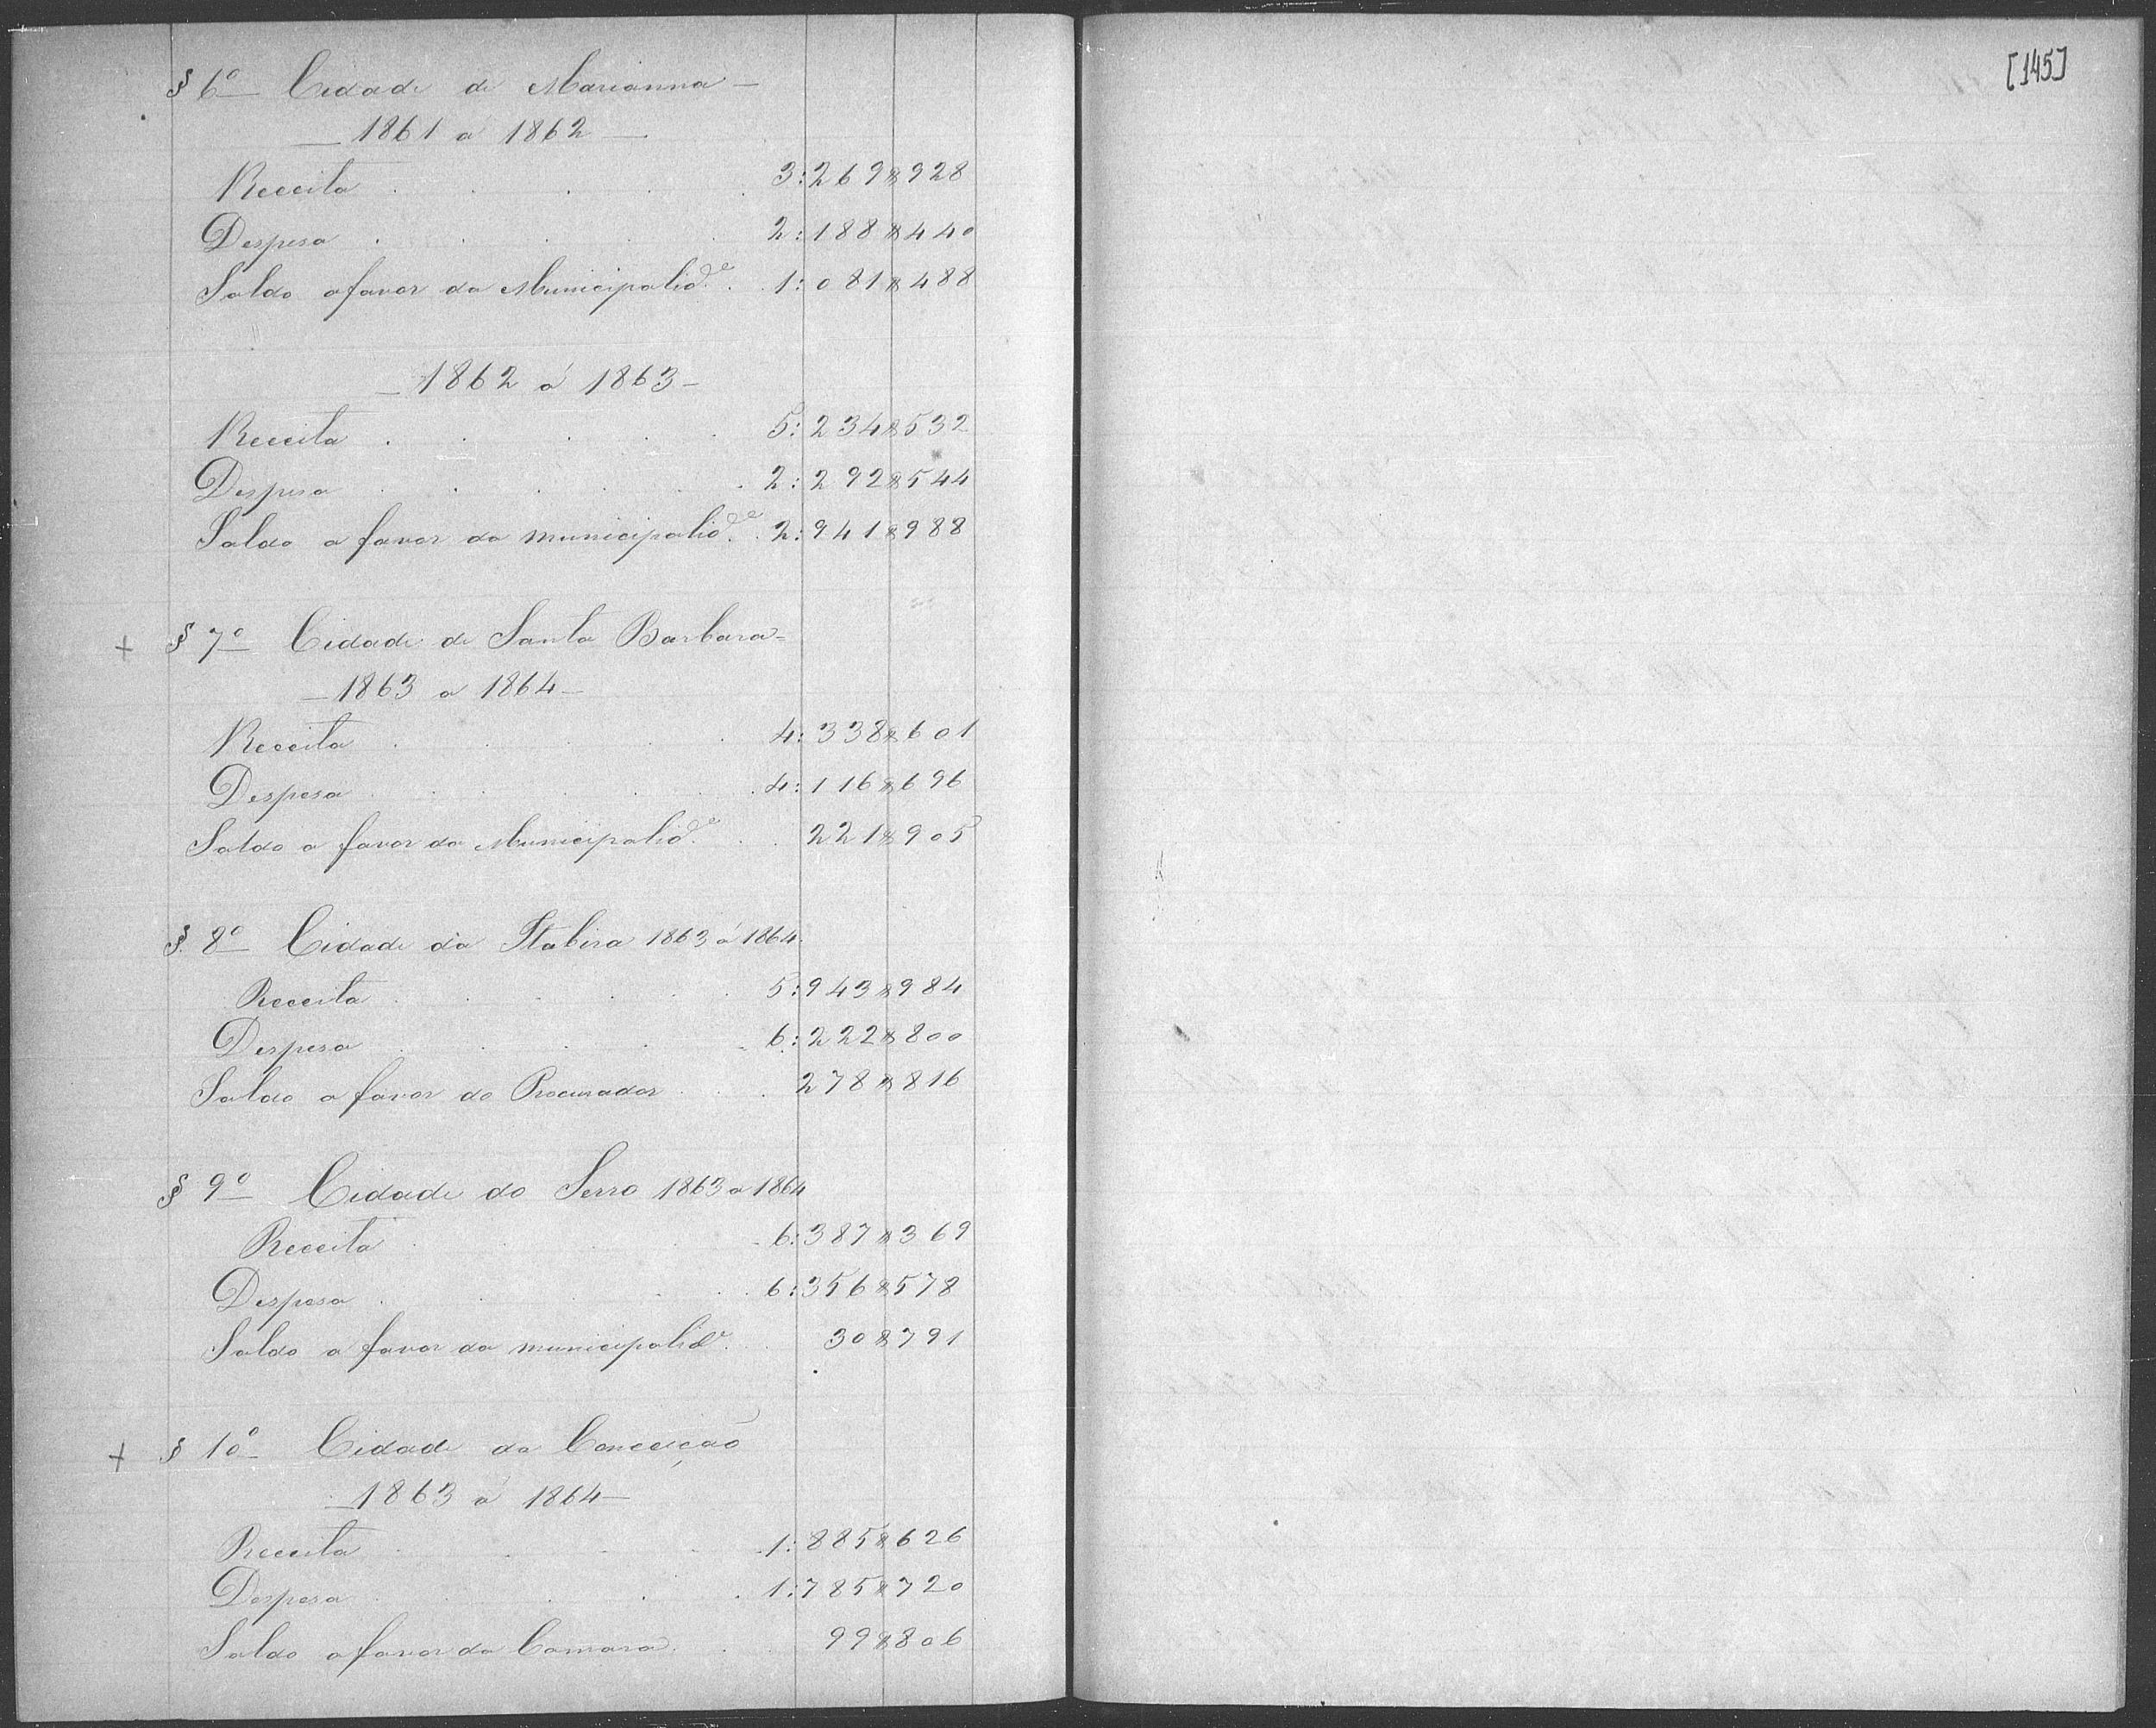 § 6º Cidade de Marianna —
— 1861 a 1862 —
Receita . . . . . 3:269$928
Despesa . . . . . 2:188$440
Saldo a favor da Municipalid.e . . 1:081$488
— 1862 á 1863 —
Receita . . . . . 5:234$532
Despesa . . . . . 2:292$544
Saldo a favor da municipalid.e . 2:941$988
+ § 7º Cidade de Santa Barbara —
— 1863 a 1864 —
Receita . . . . . 4:338$601
Despesa . . . . . 4:116$696
Saldo a favor da Municipalid.e . . 221$905
§. 8º Cidade da Itabira 1863 á 1864.
Receita . . . . . 5:943$984
Despesa . . . . . 6:222$800
Saldo a favor do Procurador . . . 278$816
§ 9º Cidade do Serro 1863 a 1864
Receita . . . . 6:387$369
Despesa . . . . . 6:356$578
Saldo a favor da municipalid.e . . 30$791
+ § 10º Cidade da Conceição
— 1863 á 1864 —
Receita . . . . . 1:885$626
Despesa . . . . . 1:785$720
Saldo a favor da Camara . . . 99$806
[145]